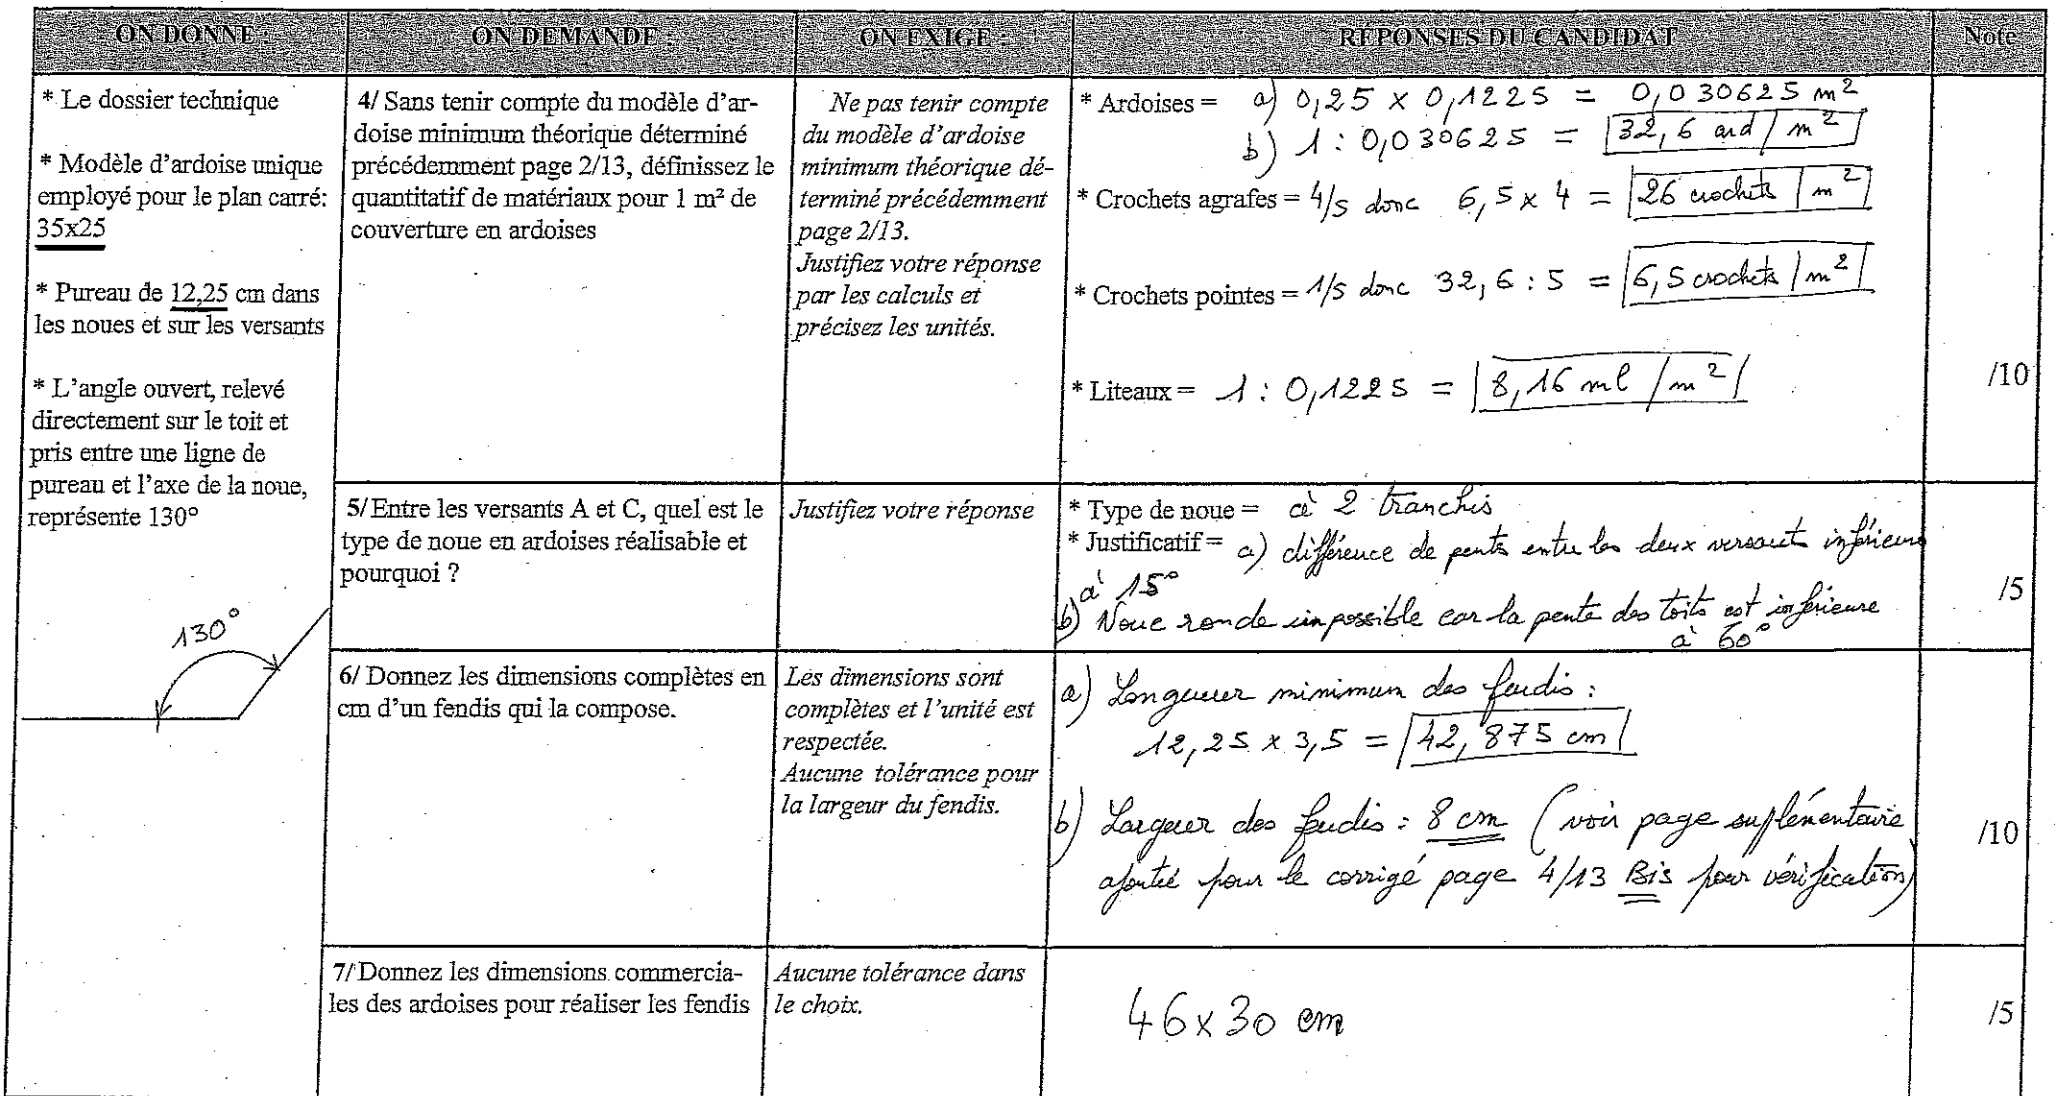 ON DONNE :
ON DEMANDE :
ON EXIGE :
RÉPONSES DU CANDIDAT
Note
* Le dossier technique
* Modèle d'ardoise unique
employé pour le plan carré:
35x25
* Pureau de 12,25 cm dans
les noues et sur les versants
* L'angle ouvert, relevé
directement sur le toit et
pris entre une ligne de
pureau et l'axe de la noue,
représente 130°
130°
4/ Sans tenir compte du modèle d'ar-
doise minimum théorique déterminé
précédemment page 2/13, définissez le
quantitatif de matériaux pour 1 m² de
couverture en ardoises
Ne pas tenir compte
du modèle d'ardoise
minimum théorique dé-
terminé précédemment
page 2/13.
Justifiez votre réponse
par les calculs et
précisez les unités.
* Ardoises = a) 0,25 x 0,1225 = 0,030625 m²
b) 1 : 0,030625 = 32,6 ard / m²
* Crochets agrafes = 4/5 donc 6,5 x 4 = 26 crochets / m²
* Crochets pointes = 1/5 donc 32,6 : 5 = 6,5 crochets / m²
* Liteaux = 1 : 0,1225 = 8,16 ml / m²
/10
5/ Entre les versants A et C, quel est le
type de noue en ardoises réalisable et
pourquoi ?
Justifiez votre réponse
* Type de noue = à 2 tranchis
* Justificatif = a) différence de pente entre les deux versants inférieure
à 15°
b) Noue ronde impossible car la pente des toits est inférieure
à 60°
/5
6/ Donnez les dimensions complètes en
cm d'un fendis qui la compose.
Les dimensions sont
complètes et l'unité est
respectée.
Aucune tolérance pour
la largeur du fendis.
a) Longueur minimum des fendis :
12,25 x 3,5 = 42,875 cm
b) Largeur des fendis : 8 cm (voir page suplémentaire
ajouté pour le corrigé page 4/13 Bis pour vérification)
/10
7/ Donnez les dimensions commercia-
les des ardoises pour réaliser les fendis
Aucune tolérance dans
le choix.
46x30 cm
/5